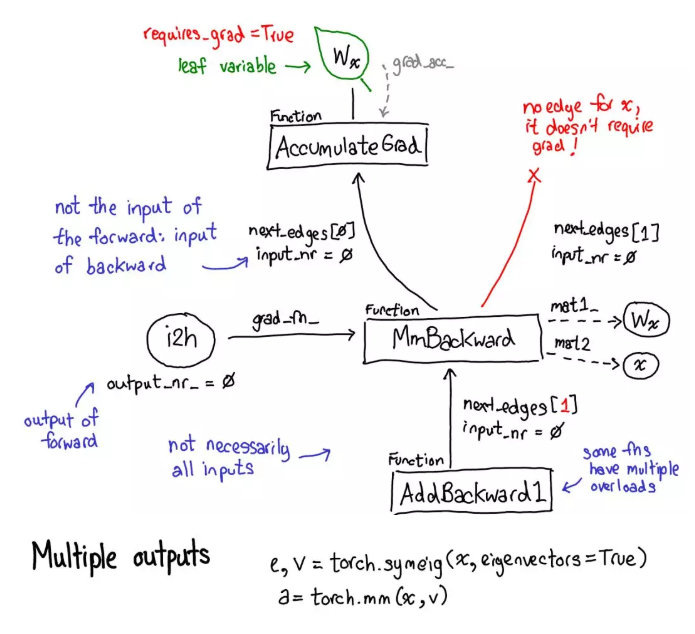 requires_grad = True
leaf variable →
Wx
grad_acc_
no edge for x,
it doesn't require
grad!
Function
AccumulateGrad
not the input of
the forward: input
of backward
next_edges[0]
input_nr = 0
next_edges[1]
input_nr = 0
Function
MmBackward
i2h
grad_fn_
mat1_
Wx
mat2
x
output_nr_ = 0
output of
forward
next_edges[1]
input_nr = 0
not necessarily
all inputs
Function
AddBackward1
some fns
have multiple
overloads
Multiple outputs
e, v = torch.symeig(x, eigenvectors=True)
a = torch.mm(x, v)